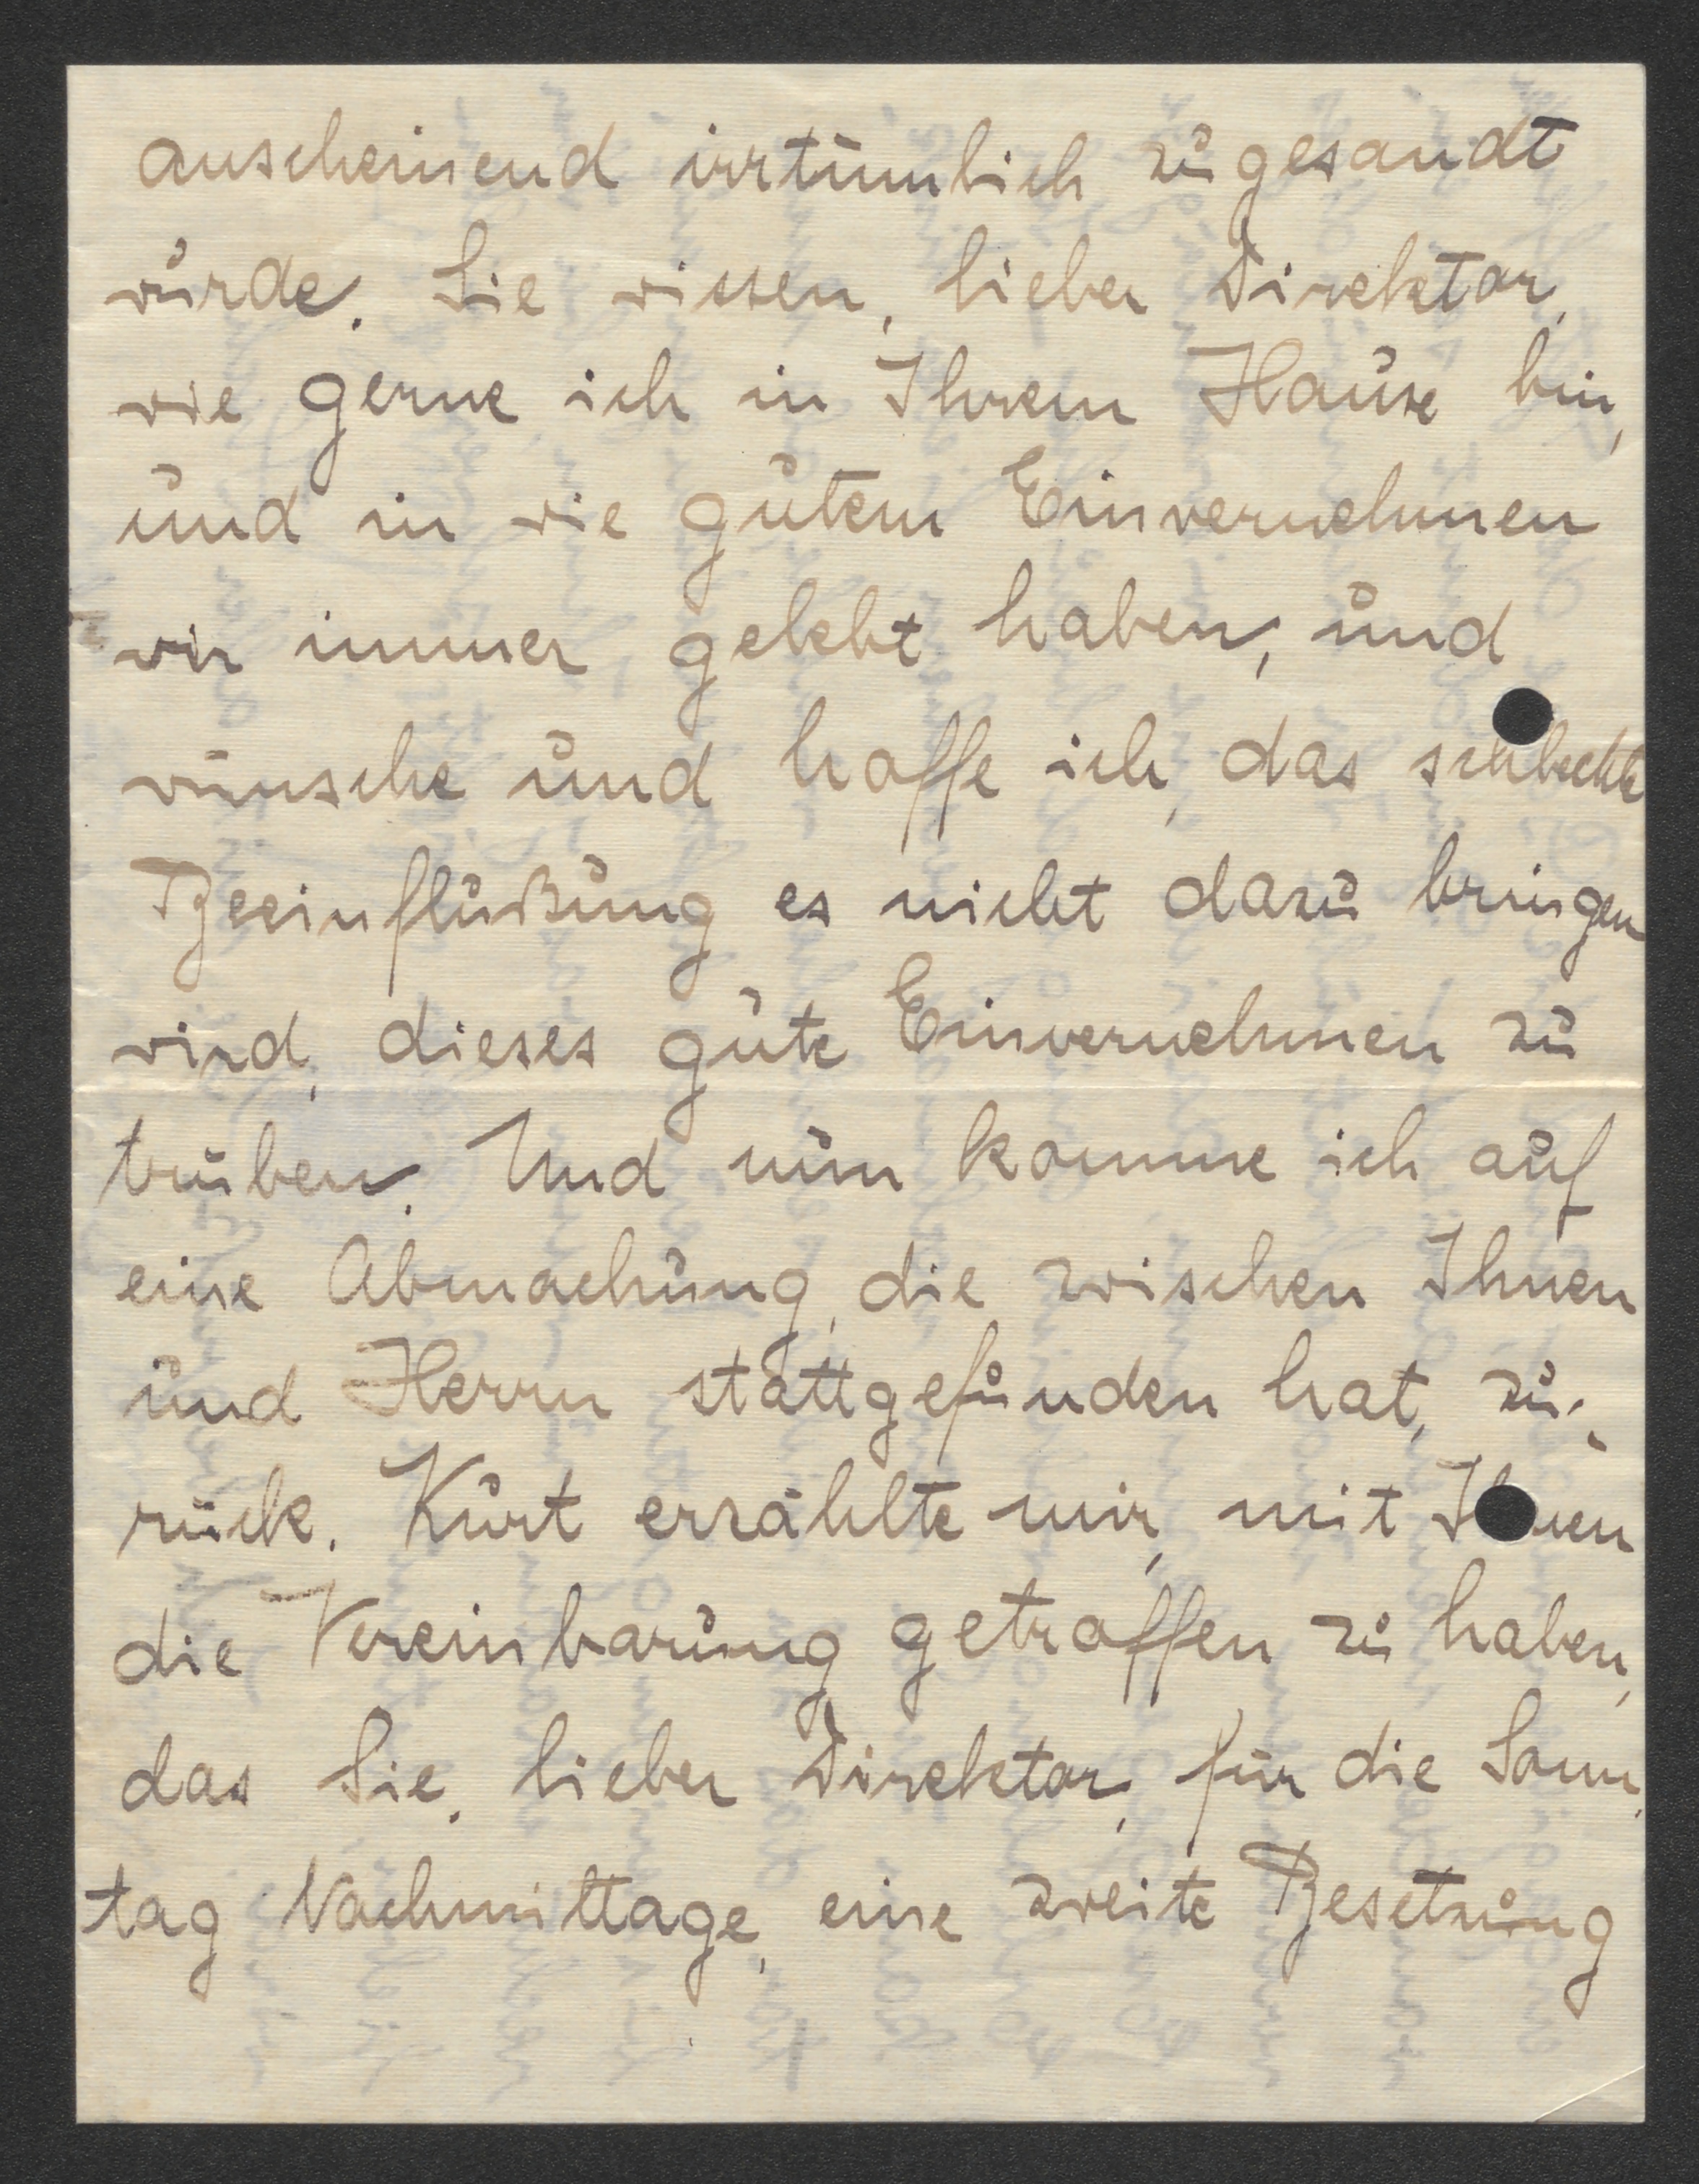 anscheinend irrtümlich zugesandt
wurde. Sie wissen, lieber Direktor,
wie gerne ich in Ihrem Hause bin,
und in wie gutem Einvernehmen
wir immer gelebt haben, und
wünsche und hoffe ich, das schlechte
Beeinflußung es nicht dazu bringen
wird, dieses gute Einvernehmen zu
trüben. Und nun komme ich auf
eine Abmachung, die zwischen Ihnen
und Herrn stattgefunden hat, zu-
rück. Kurt erzählte mir, mit Ihnen
die Vereinbarung getroffen zu haben,
das Sie, lieber Direktor, für die Sonn-
tag Nachmittage, eine zweite Besetzung